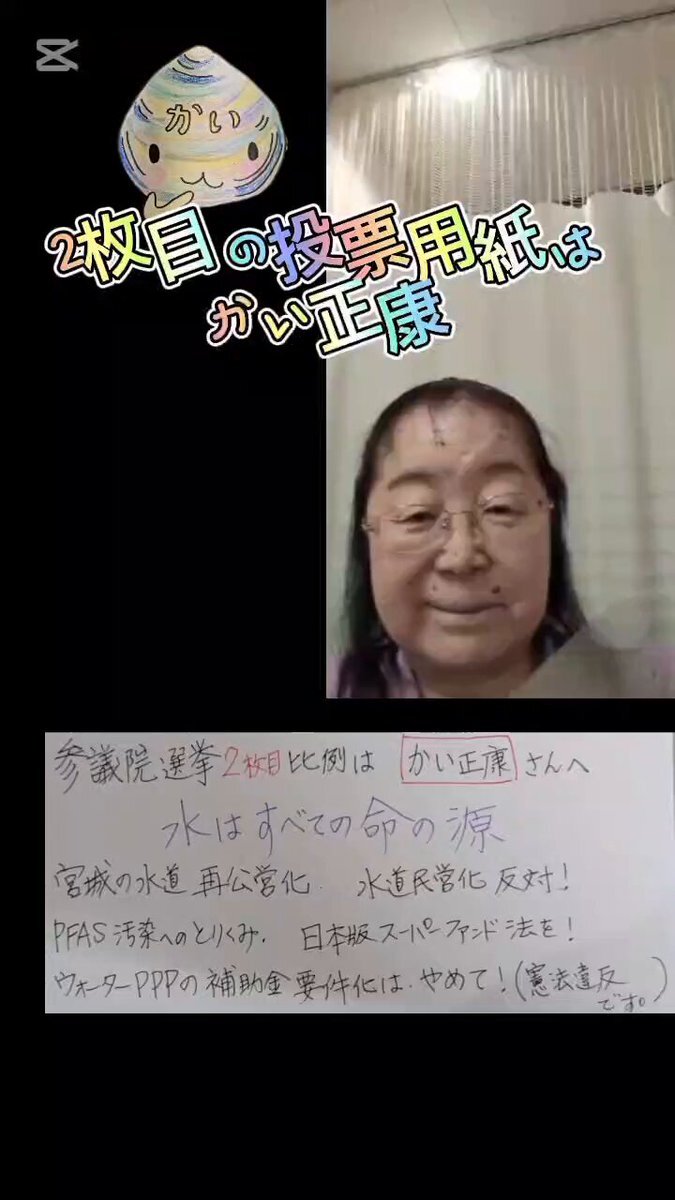 かい
2枚目の投票用紙は
かい正康
参議院選挙2枚目比例は かい正康さんへ
水はすべての命の源
宮城の水道 再公営化. 水道民営化 反対!
PFAS汚染へのとりくみ. 日本版スーパーファンド法を!
ウォーターPPPの補助金要件化は.やめて!(憲法違反
です。)